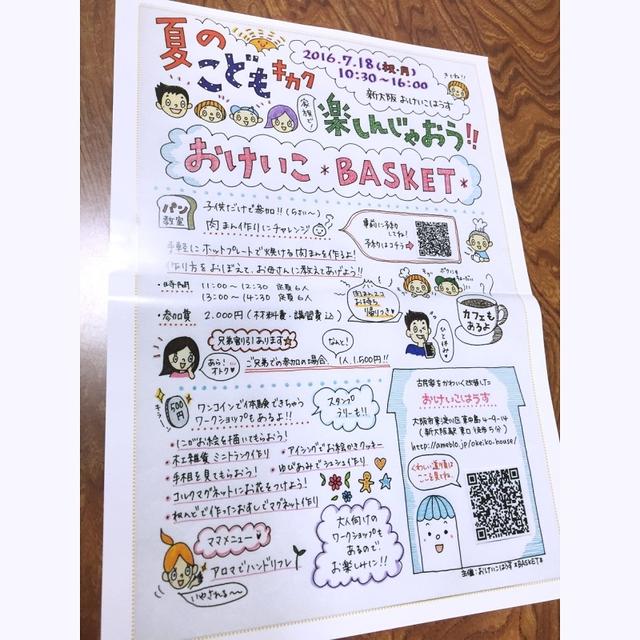 夏の
こどもキカク
2016.7.18(祝・月)
10:30〜16:00
新大阪 おけいこはうす
家族で!
楽しんじゃおう!!
おけいこ*BASKET*
パン
教室
子供だけで参加!!(5さい〜)
肉まん作りにチャレンジ
事前に予約
してね!
予約はコチラ→
手軽にホットプレートで焼ける肉まんを作るよ!
作り方をおぼえて、お母さんに教えてあげよう!!
・時間 11:00〜12:30 定員6人
13:00〜14:30 定員6人
・参加費 2,000円(材料費・講習費込)
お持ち
帰りつき♥
カフェも
あるよ
ひと休み
兄弟割引あります☆
なんと!
あら!
オトク♥
ご兄弟での参加の場合、1人1,500円!!
キラーン
500円
ワンコインで体験できちゃう
ワークショップもあるよ!!
スタンプ
ラリーも!!
・にこにこお絵を描いてもらおう!
・木工雑貨 ミニトランク作り
・アイシングでお絵かきクッキー
・手相を見てもらおう!
・ゆびあみでシュシュ作り
・コルクマグネットにお花をつけよう!
・ねんどで作ったおすしでマグネット作り
ママメニュー
アロマでハンドリフレ
いやされる〜
大人向けの
ワークショップも
あるので
お楽しみに!!
古民家をかわいく改装した
おけいこはうす
大阪市東淀川区東中島4-9-14
(新大阪駅 東口 徒歩5分)
http://ameblo.jp/okeiko.house/
くわしい道順は
ここを見てね
主催:おけいこはうす*BASKET*